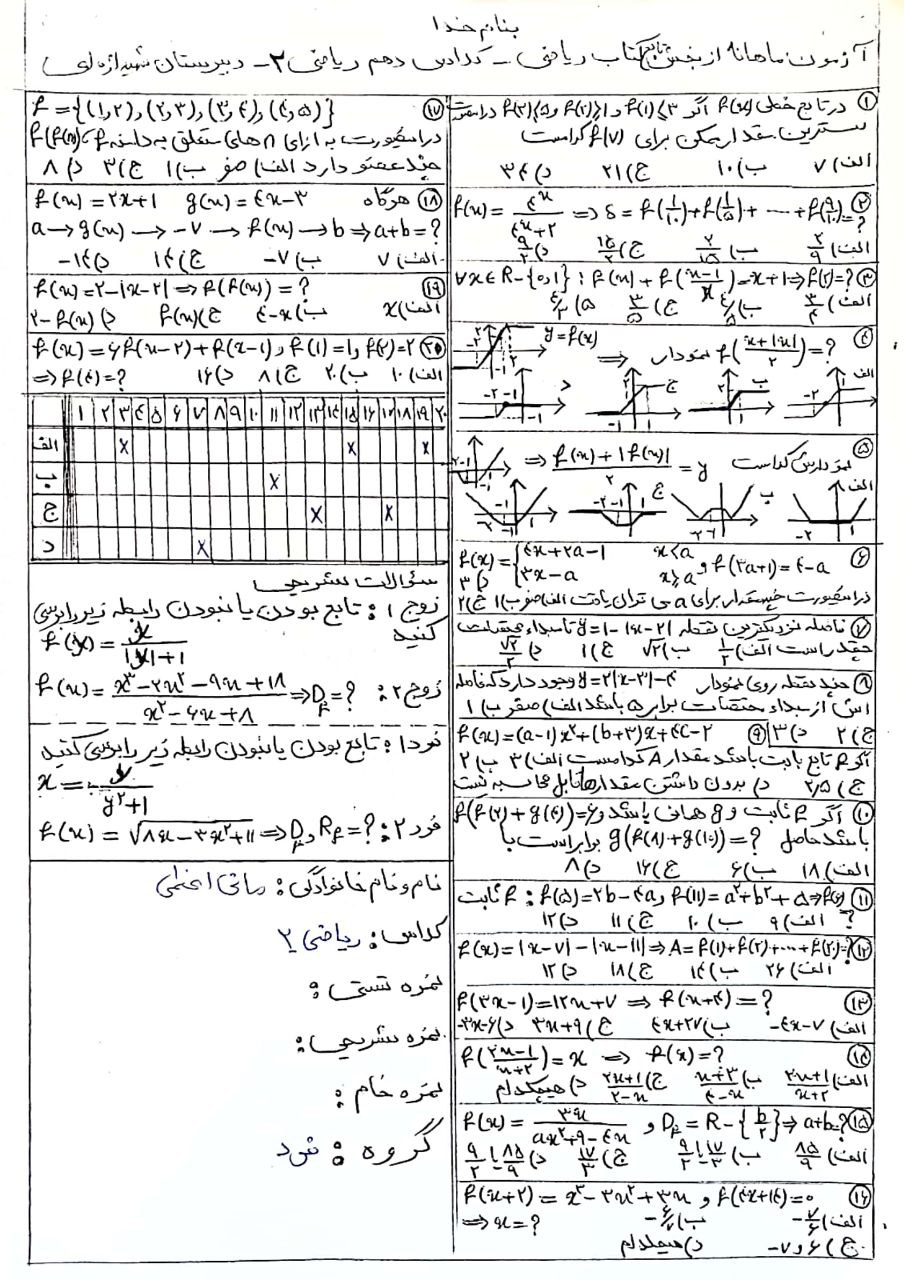 بنام خدا
آزمون ماهانه از بخش تابع کتاب ریاضی - کلاس دهم ریاضی ۲ - دبیرستان شهید اژه‌ای
① در تابع خطی f(x) اگر f(1)≤3 و f(2)≥1 و f(3)≤5 در اینصورت
بیشترین مقدار ممکن برای f(7) کدامست
الف) ۷ ب) ۱۰ ج) ۲۱ د) ۳۴
② f(x) = ۴^x / (۴^x+۲) => S = f(1/10) + f(1/5) + ... + f(9/10) = ?
الف) ۲/۹ ب) ۲/۱۵ ج) ۱۵/۲ د) ۹/۲
③ ∀x∈R-{0,1} : f(x) + f((x-1)/x) = x+1 => f(2)=?
الف) ۳/۴ ب) ۴/۵ ج) ۳/۵ د) ۴/۲
④ y=f(x) => نمودار f((x+|x|)/2) = ?
الف ب ج د
⑤ نمودارش کداست y = (f(x)+|f(x)|)/2
الف ب ج
⑥ f(x) = { ۴x+۲a-1 x<a
۳x-a x≥a و f(۳a+1)=۴-a
در اینصورت چند مقدار برای a می توان یافت الف) صفر ب) ۱ ج) ۲ د) ۳
⑦ فاصله نزدیکترین نقطه y=1-|x-2| تا مبداء مختصات
چقدر است الف) ۱/۲ ب) √۲ ج) ۱ د) √۲/۲
⑧ چند نقطه روی نمودار y=۲|x-۳|-۴ وجود دارد که فاصله
اش از مبداء مختصات برابر ۵ باشد الف) صفر ب) ۱
ج) ۲ د) ۳
⑨ f(x)=(a-1)x²+(b+3)x+4c-2
اگر f تابع ثابت باشد مقدار A کدامست الف) ۳ ب) ۲
ج) ۲,۵ د) بدون داشتن مقدارها قابل محاسبه نیست
⑩ اگر f ثابت و g همانی باشد و f(f(2)+g(4))=6
باشد حاصل g(f(8)+g(10))=? برابر است با
الف) ۱۸ ب) ۶ ج) ۱۶ د) ۸
⑪ f ثابت : f(5)=2b-4a و f(11)=a²+b²+5 => f(6)
? الف) ۹ ب) ۱۰ ج) ۱۱ د) ۱۲
⑫ f(x)=|x-7|-|x-11| => A=f(1)+f(2)+...+f(20)=?
الف) ۲۶ ب) ۱۴ ج) ۱۸ د) ۱۲
⑬ f(3x-1)=12x+7 => f(x+4)=?
الف) -۴x-۷ ب) ۴x+۲۷ ج) ۳x+۹ د) -۳x-۶
⑭ f((2x-1)/(x+2))=x => f(x)=?
الف) (۲x+1)/(x+۲) ب) (x+۳)/(x-۴) ج) (۲x+1)/(۲-x) د) هیچکدام
⑮ f(x)= 3x/(ax²+9-4x) و D_f=R-{b/2} => a+b=?
الف) ۸۵/۹ ب) ۱۷/۳ یا ۹/۲ ج) ۱۷/۳ د) ۸۵/۹ یا ۹/۲
⑯ f(x+2)=x³-3x²+3x و f(4x+14)=0
=> x=? الف) -۷/۶ ب) -۶/۷
ج) ۶ و -۷ د) هیچکدام
⑰ f={(1,2),(2,3),(3,4),(4,5)}
در اینصورت به ازای n های متعلق به دامنه f، f(f(n))
چند عضو دارد الف) صفر ب) ۱ ج) ۳ د) ۸
⑱ هرگاه f(x)=2x+1 g(x)=4x-3
a → g(x) → -7 → f(x) → b => a+b=?
الف) ۷ ب) -۷ ج) ۱۴ د) -۱۴
⑲ f(x)=2-|x-2| => f(f(x))=?
الف) x ب) ۴-x ج) f(x) د) ۲-f(x)
⑳ f(x)=6f(x-2)+f(x-1) و f(1)=1 و f(2)=2
=> f(4)=? الف) ۱۰ ب) ۲۰ ج) ۸ د) ۱۶
۱ ۲ ۳ ۴ ۵ ۶ ۷ ۸ ۹ ۱۰ ۱۱ ۱۲ ۱۳ ۱۴ ۱۵ ۱۶ ۱۷ ۱۸ ۱۹ ۲۰
الف x x x
ب x
ج x x
د x
سؤالات تشریحی
زوج ۱: تابع بودن یا نبودن رابطه زیر را بررسی
کنید
f(x) = x/(|x|+1)
زوج ۲: f(x) = (x³-2x²-9x+18)/(x²-6x+8) => D_f=?
فرد ۱: تابع بودن یا نبودن رابطه زیر را بررسی کنید
x = y/(y²+1)
فرد ۲: f(x)=√(8x-3x²+11) => D_f و R_f=?
نام و نام خانوادگی: مانی اعظمی
کلاس: ریاضی ۲
نمره تستی:
نمره تشریحی:
نمره خام:
گروه: فرد